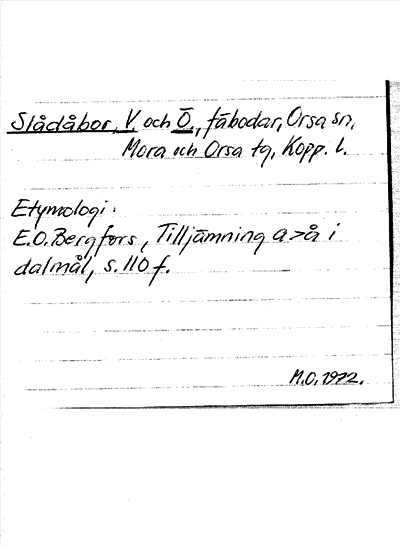 Slådåbor, V. och Ö., fäbodar, Orsa sn,
Mora och Orsa tg, Kopp. l.
Etymologi:
E.O. Bergfors, Tilljämning a>å i
dalmål, s. 110 f.
M.O. 1972.